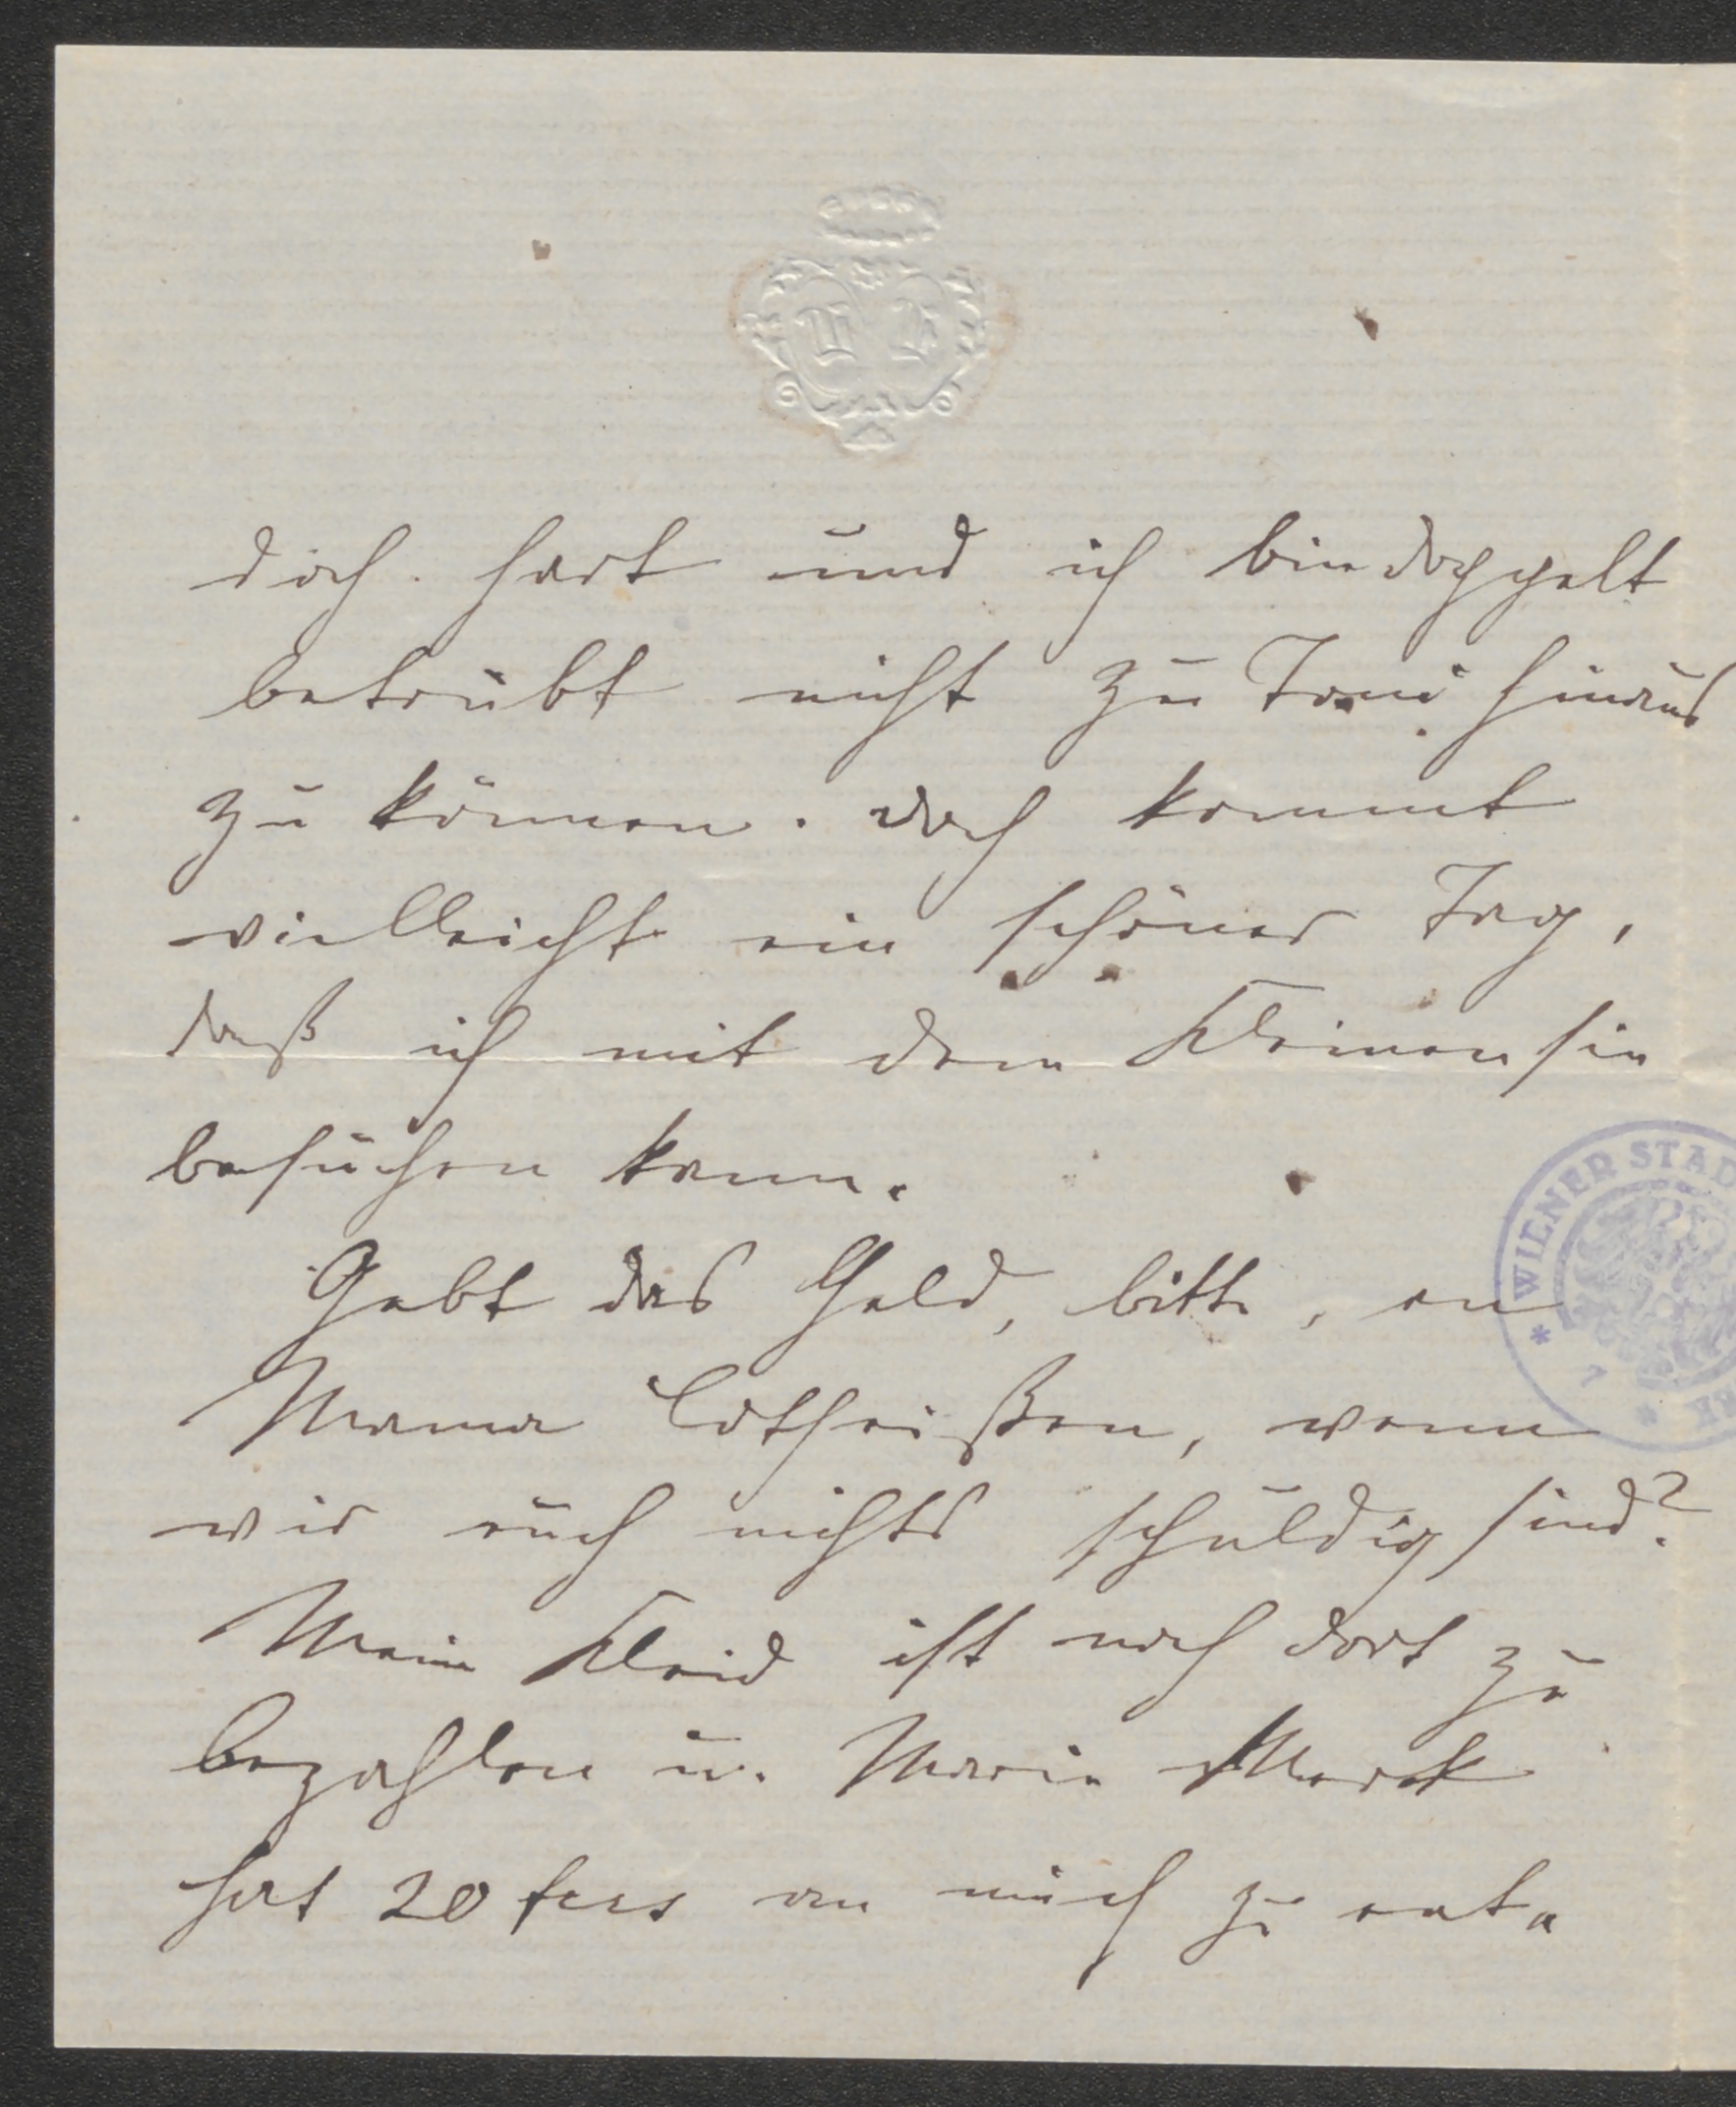 doch hart und ich bin doppelt
betrübt nicht zu Toni hinaus
zu können. doch kommt
vielleicht ein schöner Tag,
daß ich mit dem Kleinen sie
besuchen kann.
Gebt das Geld, bitte, an
Mama Lotheißen, wenn
wir euch nichts schuldig sind?
Mein Kleid ist noch dort zu
bezahlen u. Marie Mark
hat 20 fcs an mich zu ent-
* WIENER STAD